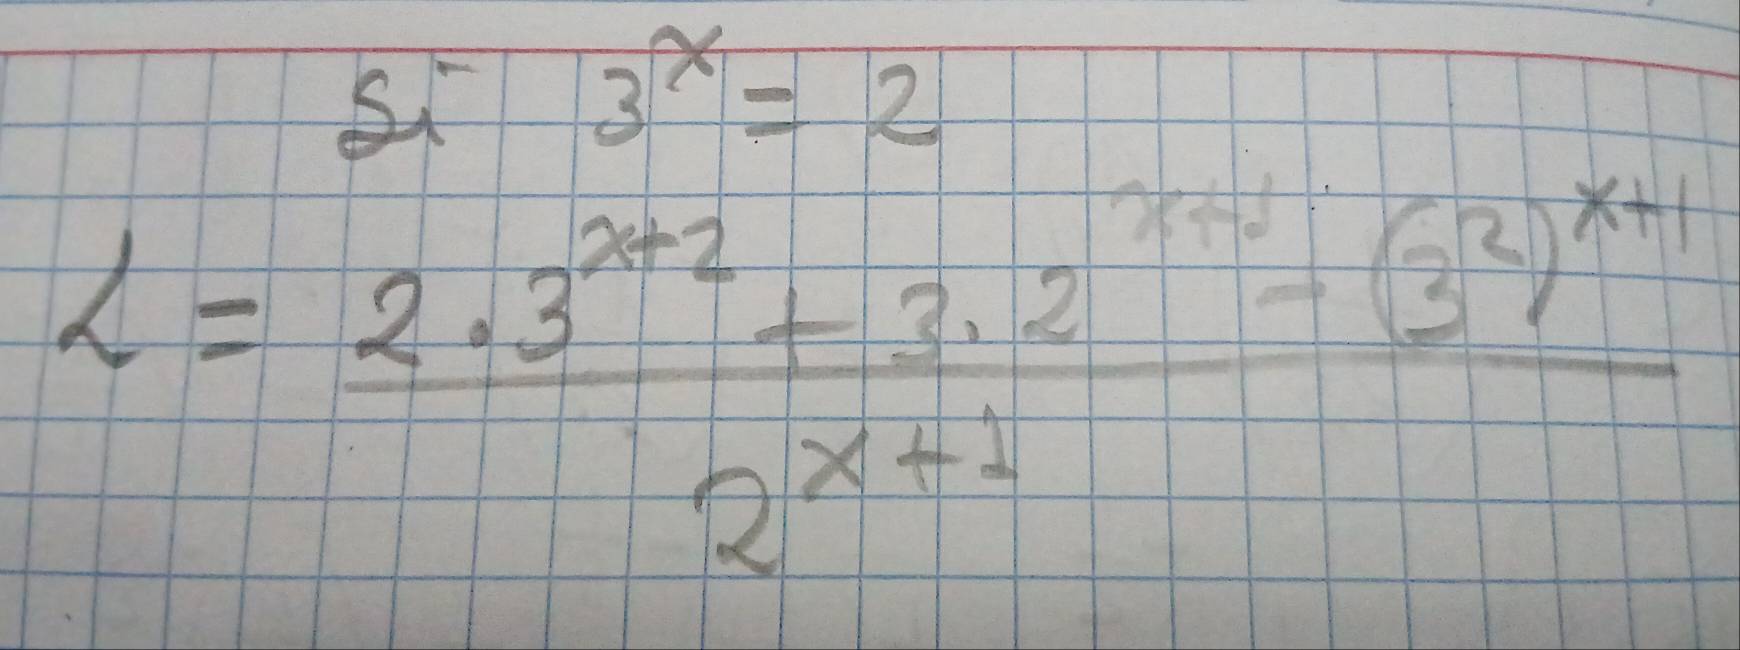 Si 3^x = 2
L = 2 · 3^{x+2} + 3 · 2^{x+1} - (3^2)^{x+1}
2^{x+1}